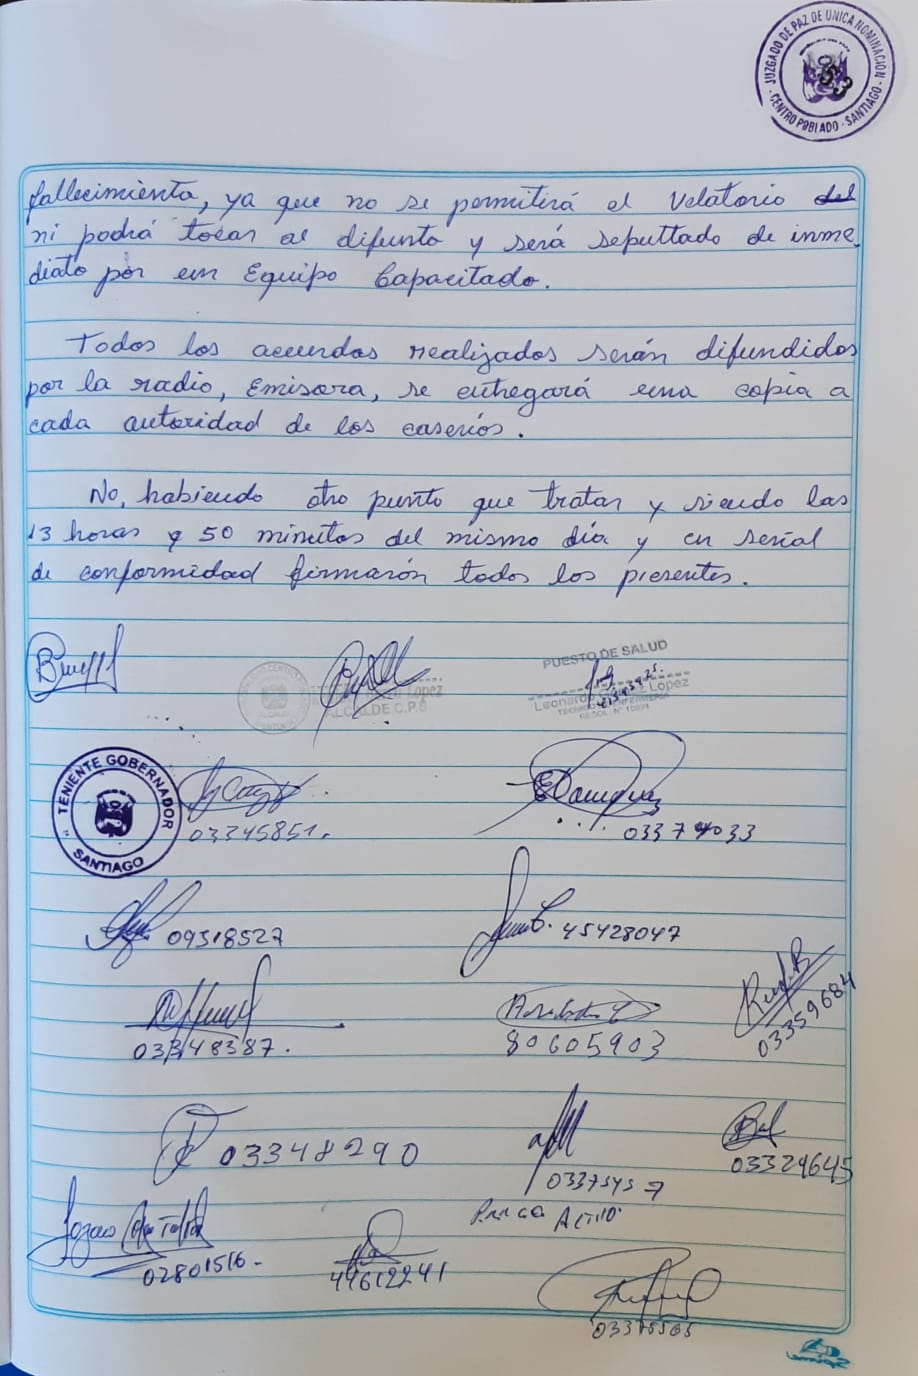 JUZGADO DE PAZ DE UNICA NOMINACION
- CENTRO POBLADO - SANTIAGO -
053
fallecimiento, ya que no se permitirá el Velatorio del
ni podrá tocar al difunto y será sepultado de inme
diato por un Equipo Capacitado.
Todos los acuerdos realizados serán difundidos
por la radio, Emisora, se entregará una copia a
cada autoridad de los caseríos.
No, habiendo otro punto que tratar y siendo las
13 horas y 50 minutos del mismo día y en señal
de conformidad firmarón todos los presentes.
PUESTO DE SALUD
López
ALCALDE C.P.
Leonardo López
TENIENTE GOBERNADOR
SANTIAGO
03345851.
03374033
09518527
45428047
03348387.
80605903
03359684
03348290
03329645
02801516.
44612241